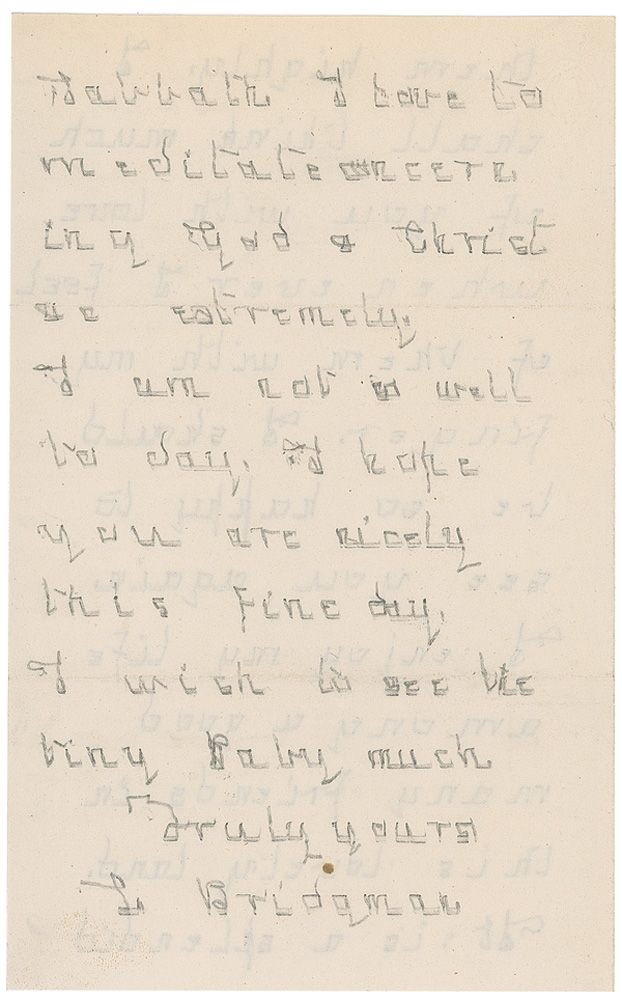 Sabbath I love to
meditate concern
ing God & Christ
so extremely.
I am not so well
to day. I hope
you are nicely
this fine day.
I wish to see the
tiny Baby much
Truly yours
L Bridgman